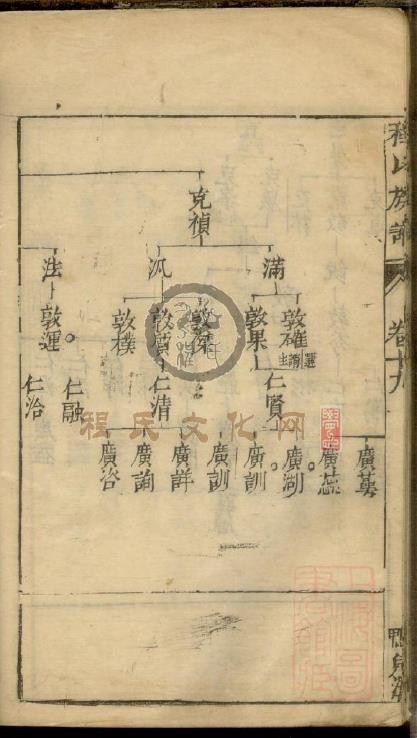 程氏族譜
卷十九
克禎
滿
汎
法
敦確
敦果
敦傑
敦質
敦樸
敦運
仁賢
仁清
仁融
仁治
廣萬
廣蕊
廣湖
廣訓
廣訓
廣詳
廣詢
廣咨
程氏文化网